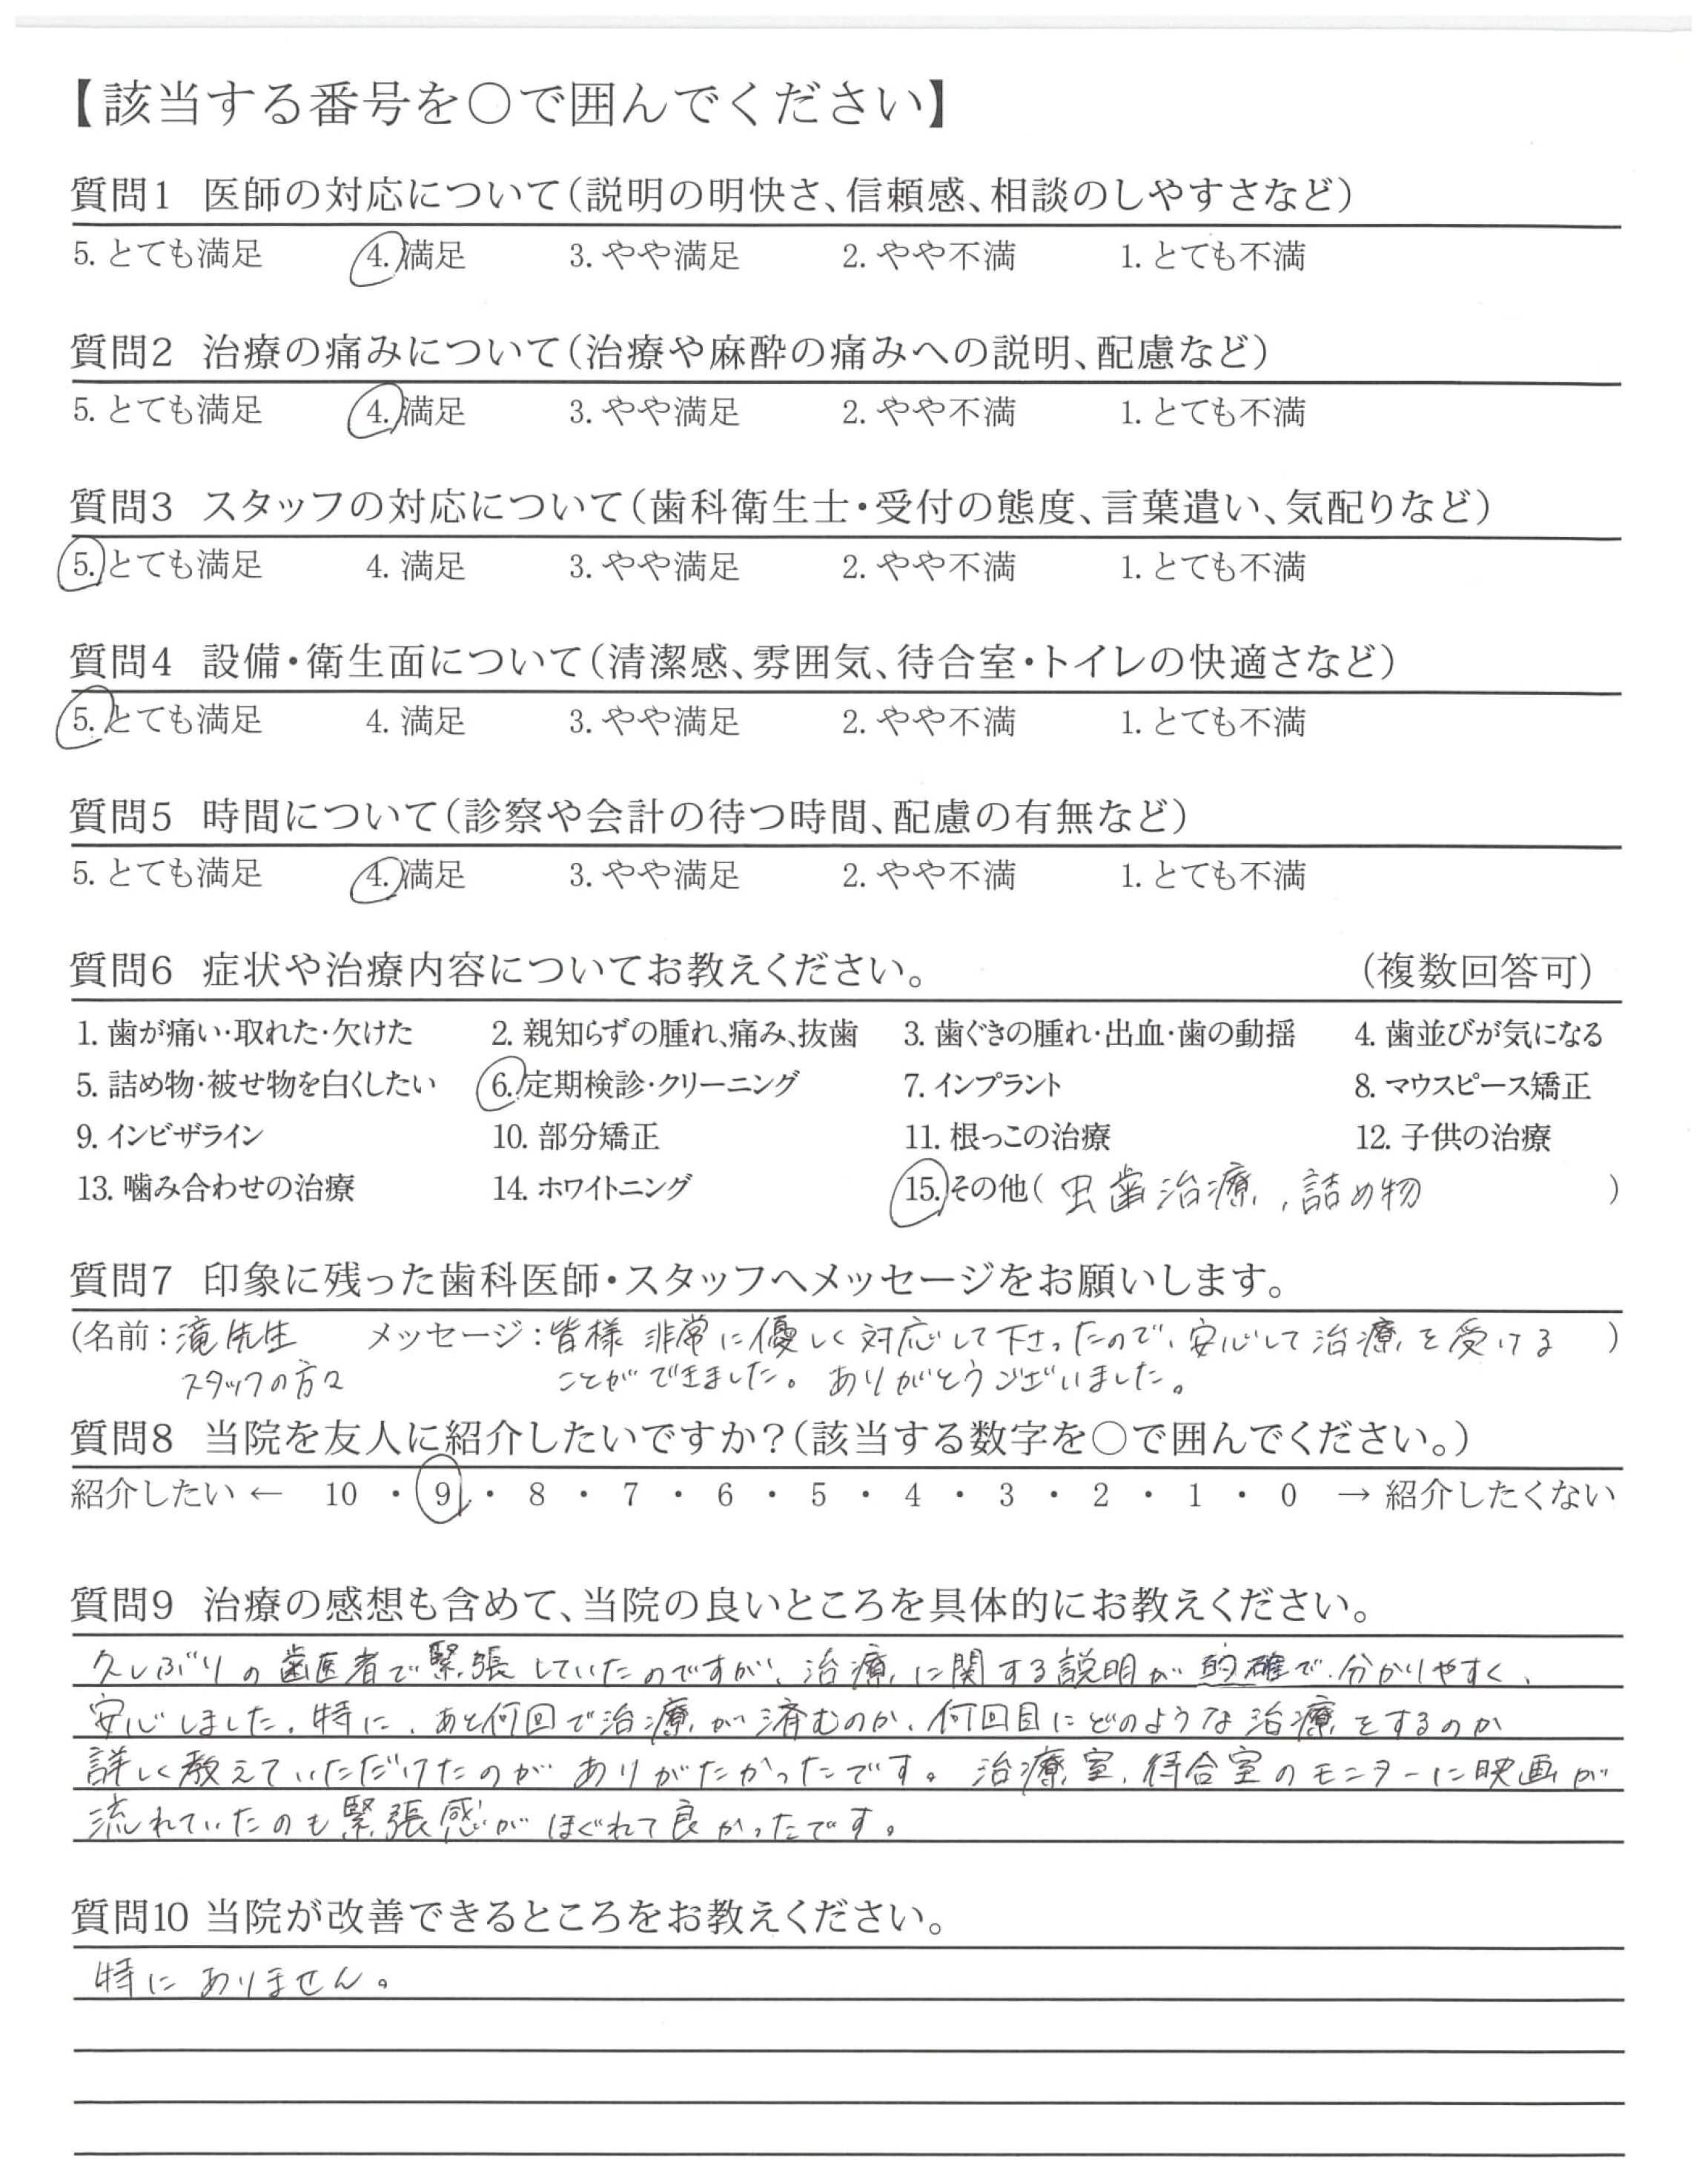 【該当する番号を○で囲んでください】
質問1 医師の対応について(説明の明快さ、信頼感、相談のしやすさなど)
5. とても満足 4. 満足 3. やや満足 2. やや不満 1. とても不満
質問2 治療の痛みについて(治療や麻酔の痛みへの説明、配慮など)
5. とても満足 4. 満足 3. やや満足 2. やや不満 1. とても不満
質問3 スタッフの対応について(歯科衛生士・受付の態度、言葉遣い、気配りなど)
5. とても満足 4. 満足 3. やや満足 2. やや不満 1. とても不満
質問4 設備・衛生面について(清潔感、雰囲気、待合室・トイレの快適さなど)
5. とても満足 4. 満足 3. やや満足 2. やや不満 1. とても不満
質問5 時間について(診察や会計の待つ時間、配慮の有無など)
5. とても満足 4. 満足 3. やや満足 2. やや不満 1. とても不満
質問6 症状や治療内容についてお教えください。 (複数回答可)
1. 歯が痛い・取れた・欠けた 2. 親知らずの腫れ、痛み、抜歯 3. 歯ぐきの腫れ・出血・歯の動揺 4. 歯並びが気になる
5. 詰め物・被せ物を白くしたい 6. 定期検診・クリーニング 7. インプラント 8. マウスピース矯正
9. インビザライン 10. 部分矯正 11. 根っこの治療 12. 子供の治療
13. 噛み合わせの治療 14. ホワイトニング 15. その他( 虫歯治療、詰め物 )
質問7 印象に残った歯科医師・スタッフへメッセージをお願いします。
(名前:滝先生 メッセージ:皆様 非常に優しく対応して下さったので、安心して治療を受ける )
スタッフの方々 ことができました。ありがとうございました。
質問8 当院を友人に紹介したいですか?(該当する数字を○で囲んでください。)
紹介したい ← 10 ・ 9 ・ 8 ・ 7 ・ 6 ・ 5 ・ 4 ・ 3 ・ 2 ・ 1 ・ 0 → 紹介したくない
質問9 治療の感想も含めて、当院の良いところを具体的にお教えください。
久しぶりの歯医者で緊張していたのですが、治療に関する説明が的確で分かりやすく、
安心しました。特に、あと何回で治療が済むのか、何回目にどのような治療をするのか
詳しく教えていただけたのがありがたかったです。治療室、待合室のモニターに映画が
流れていたのも緊張感がほぐれて良かったです。
質問10 当院が改善できるところをお教えください。
特にありません。